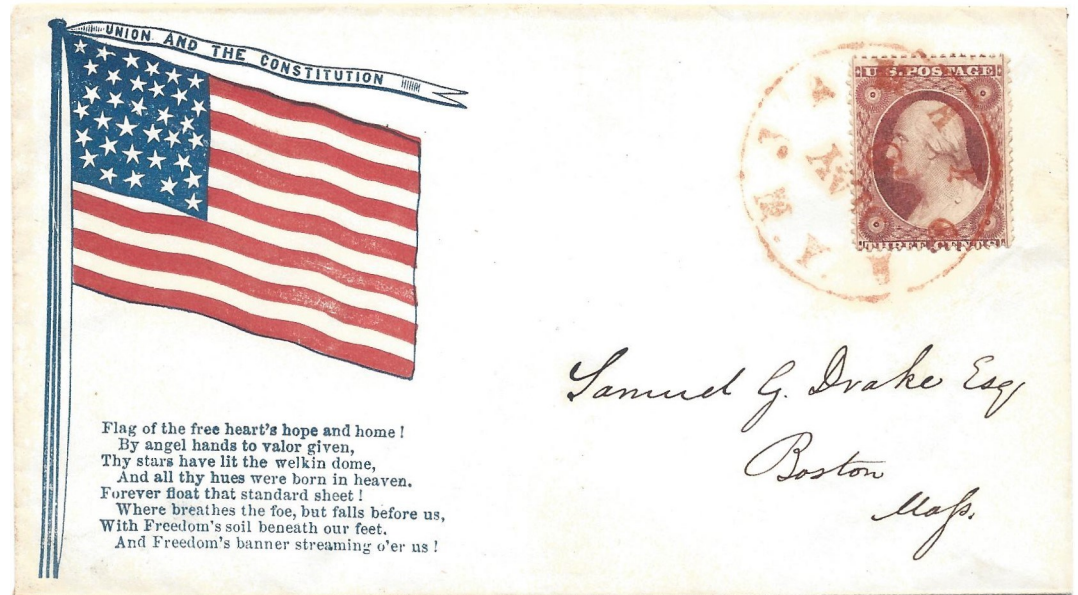 UNION AND THE CONSTITUTION
U.S. POSTAGE
THREE CENTS
Flag of the free heart's hope and home!
By angel hands to valor given,
Thy stars have lit the welkin dome,
And all thy hues were born in heaven.
Forever float that standard sheet!
Where breathes the foe, but falls before us,
With Freedom's soil beneath our feet.
And Freedom's banner streaming o'er us!
Samuel G. Drake Esq
Boston
Mass.